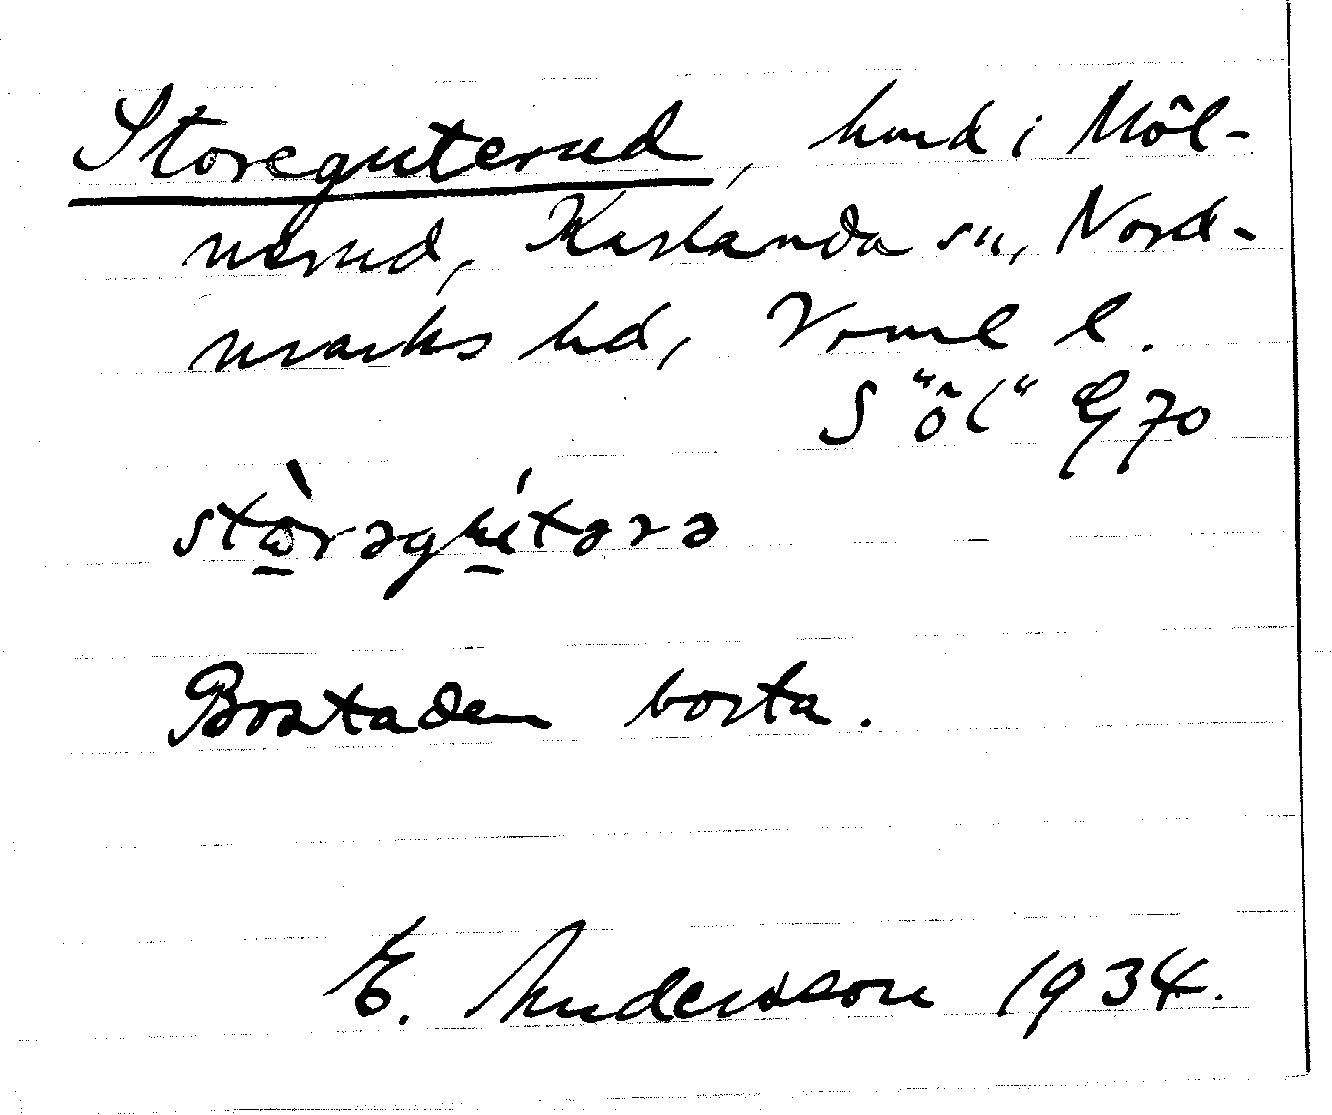 Storeguterud, hmd i Möl-
nerud, Karlanda sn, Nord-
marks hd, Vrml l.
S "öl" Ej 70
stòrəgútərə
Bostaden borta.
E. Andersson 1934.